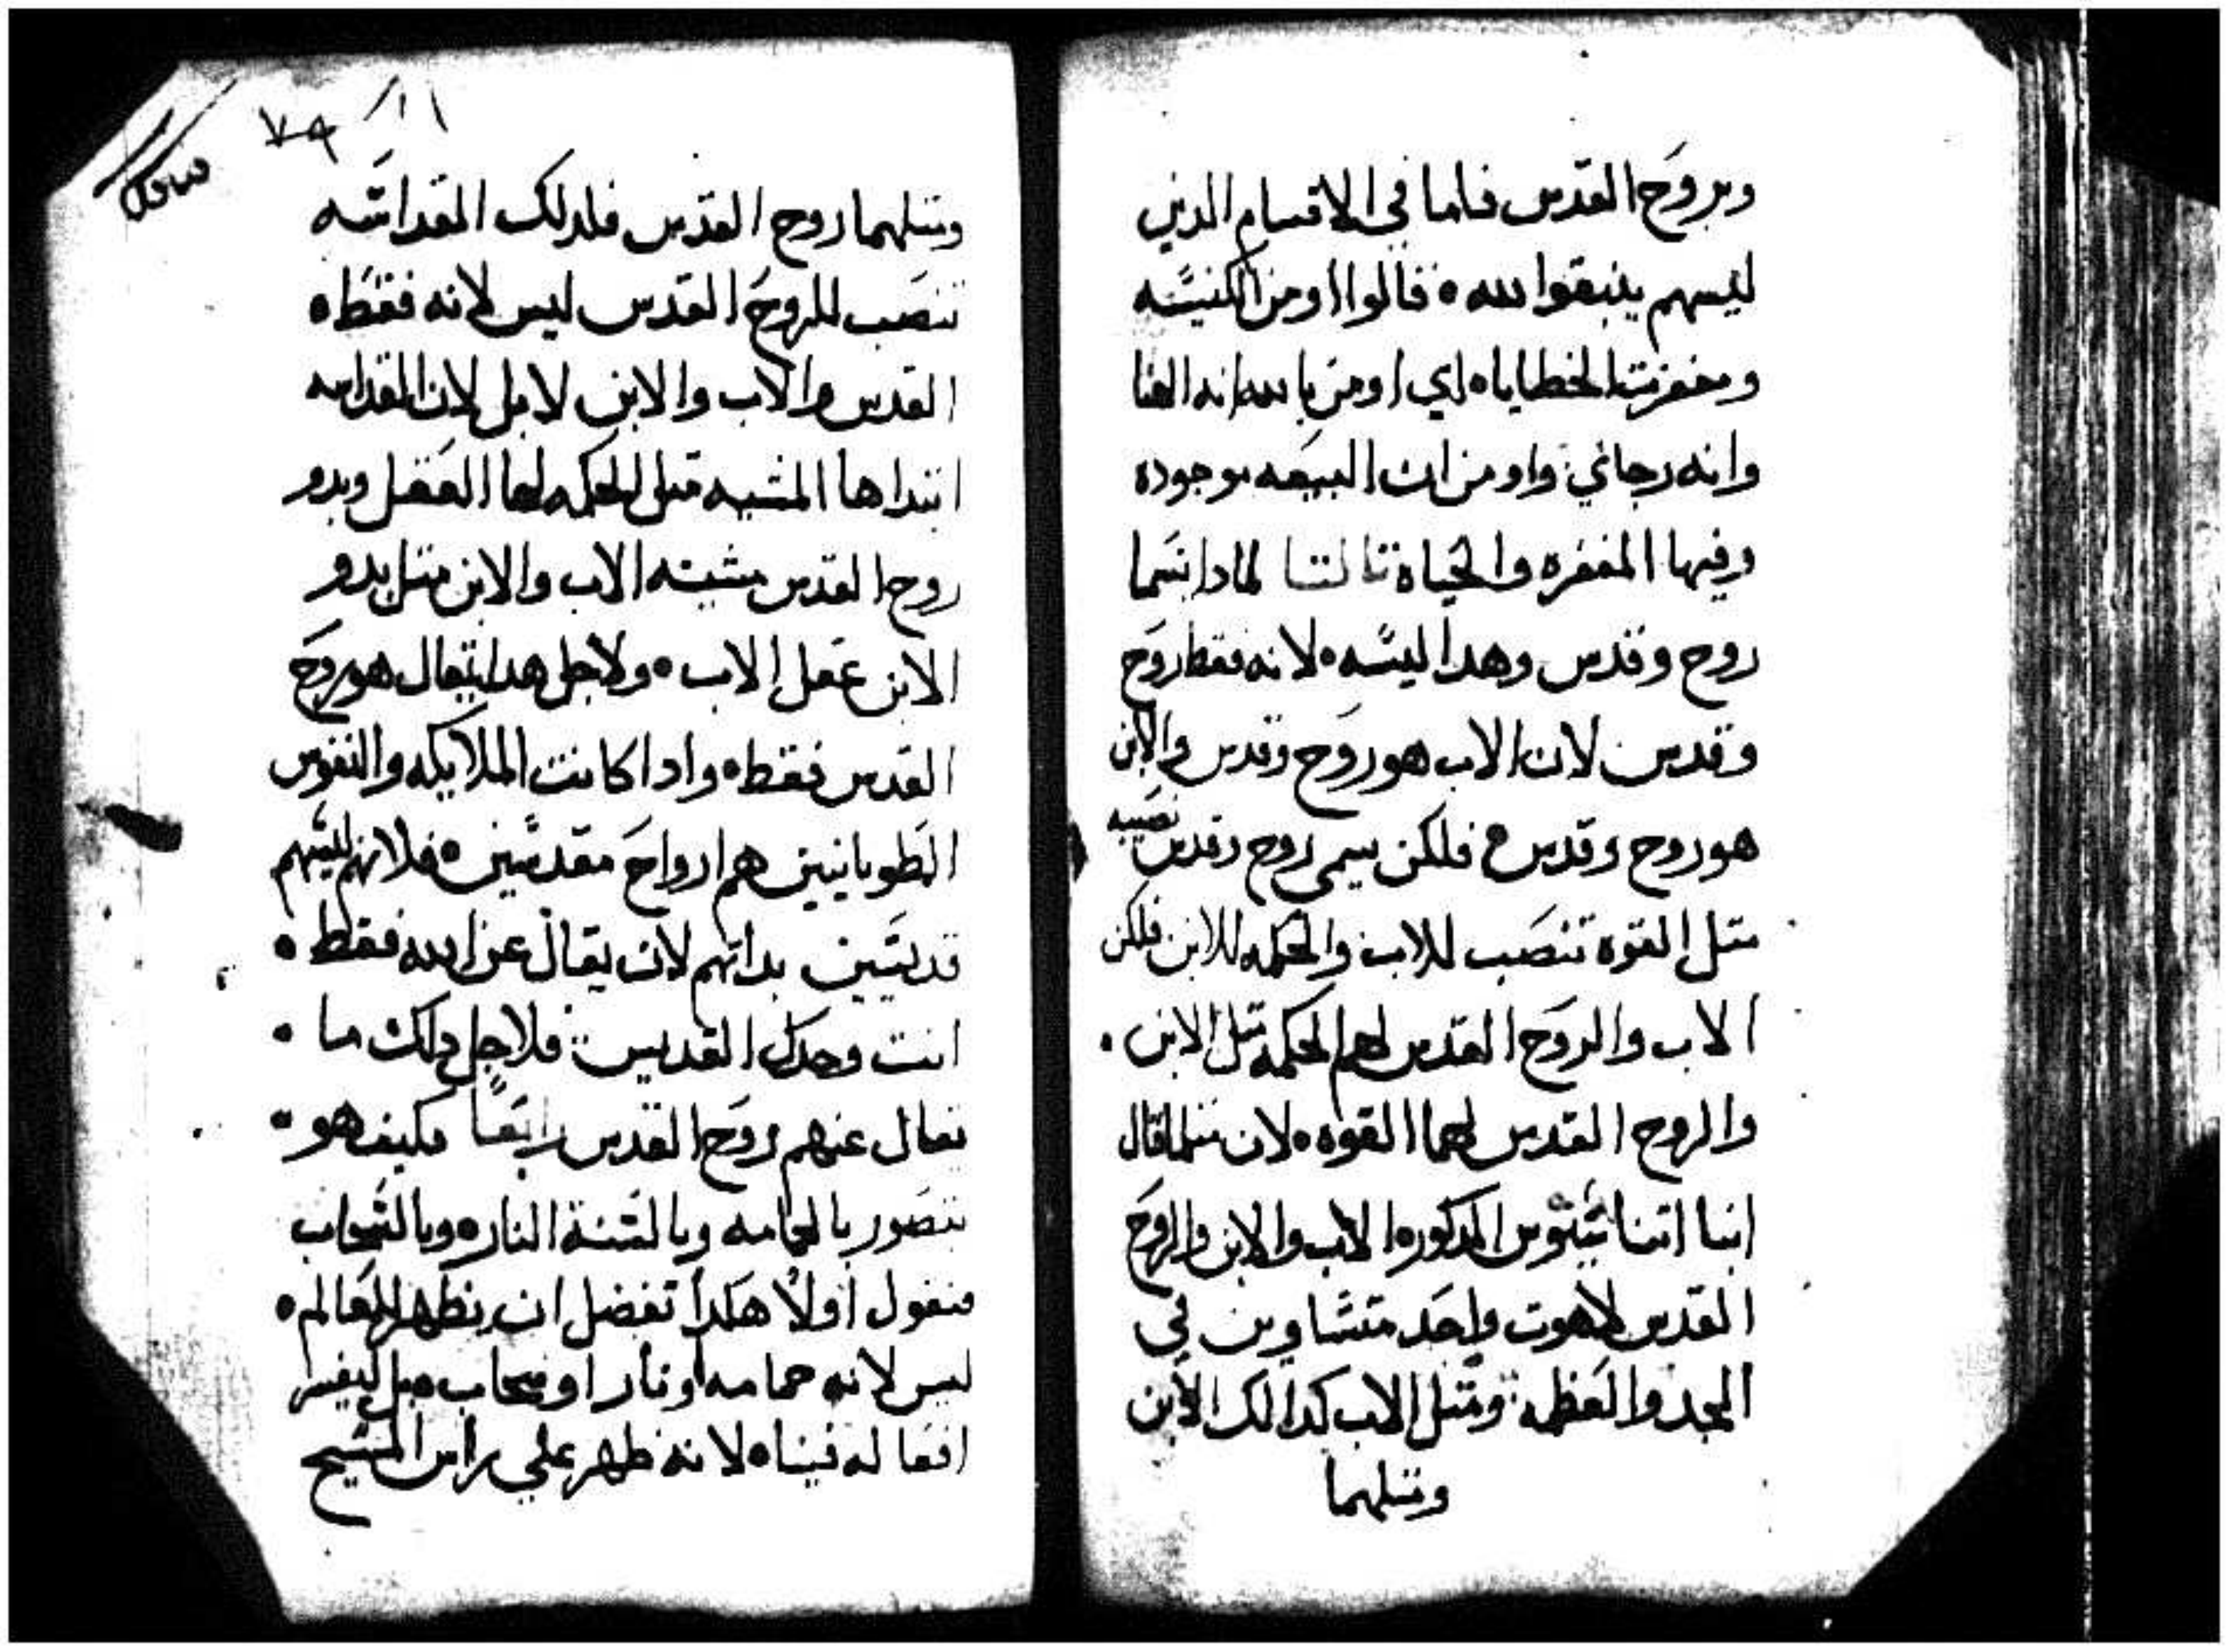 وبروح القدس فاما في الاقسام الدين
ليسهم ينبقوا لله ٥ فالوا اومن الكنيسه
ومغفرت الخطاياه اي اومن بالله انه الهنا
وانه رجاي واومن ان البيعه موجوده
وفيها المغفره والحياة تالتا لمادا يسما
روح وقدس وهدا ليسه ٥ لانه فقط روح
وقدس لان الاب هو روح وقدس والابن
هو روح وقدس فلكن يسمى روح وقدس نصيبه
متل القوه تنصب للاب والحكمه للابن فلكن
الاب والروح القدس لهم الحكمه متل الابن ٠
والروح القدس لهما القوه ٥ لان متلما قال
انبا اتناسيوس المدكوره الاب والابن والروح
القدس لاهوت واحد متساوين في
المجد والعظمه ومتل الاب كدالك الابن
ومتلهما
٧٩
ومتلهما روح القدس فلدلك القداسه
تنصب للروح القدس ليس لانه فقط ٥
القدس والاب والابن لا بل لان القداسه
ابتداها المشيه متل الحكمه لها العقل وبدو
روح القدس مشيته الاب والابن متل بدو
الابن عقل الاب ٥ ولاجل هدا يقال هو روح
القدس فقط ٥ وادا كانت الملايكه والنفوس
الطوبانيين هم ارواح مقدسين ٥ فلانهم ليسهم
قديسين بداتهم لان يقال عن الله فقط ٥
انت وحدك القديس فلاجل دلك ما ٠
يقال عنهم روح القدس رابعا فكيف هو ٠
يتصور بالحمامه وبالسنة النار ٥ وبالسحاب
فنقول اولا هكدا تفضل ان يظهر للعالم ٥
ليس لانه حمامه او نار او سحاب ٥ بل ليفسر
افعاله فينا ٥ لانه ظهر علي راس المسيح